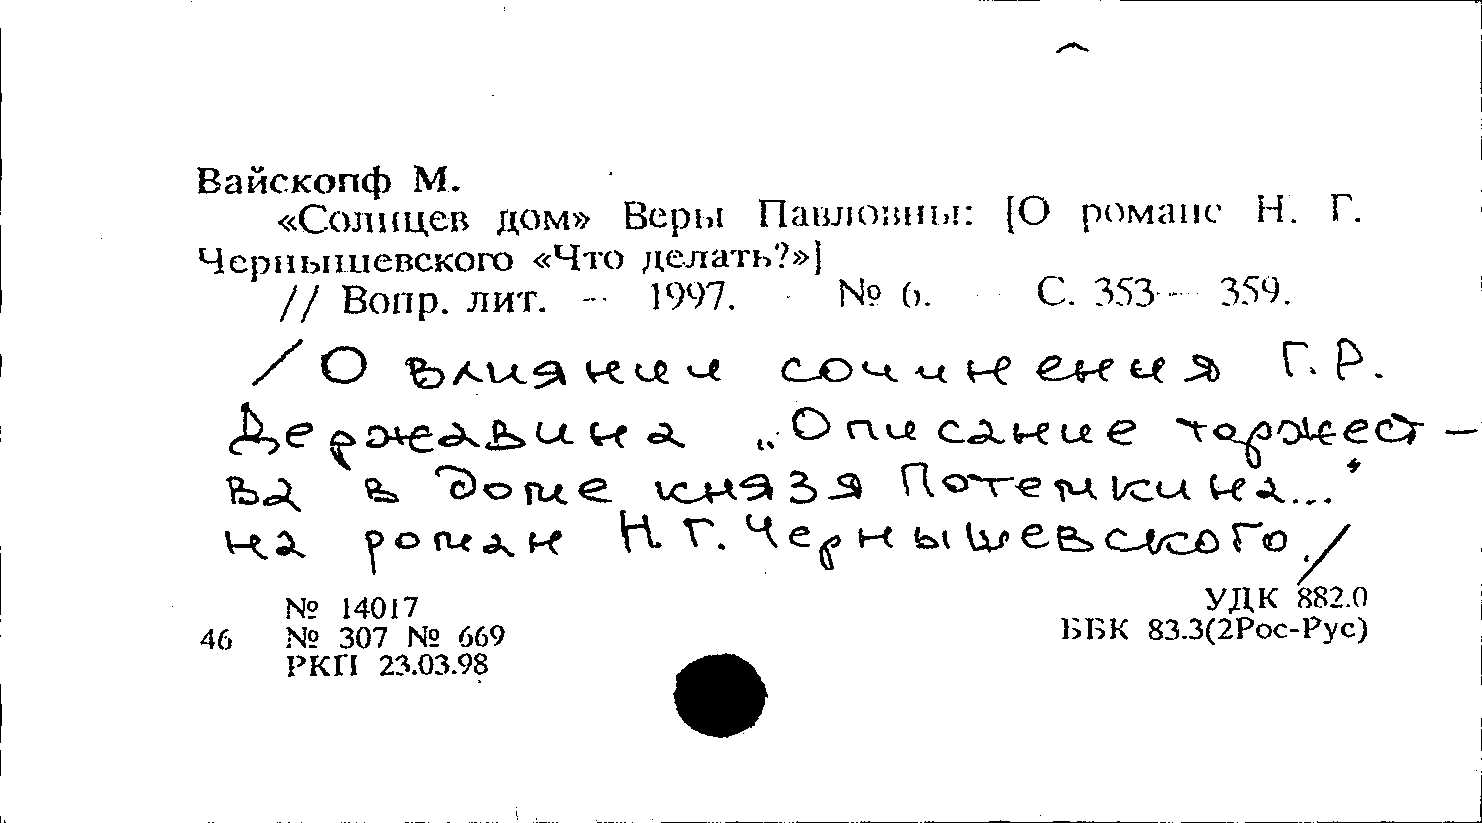 Вайскопф М.
«Солнцев дом» Веры Павловны: [О романе Н. Г.
Чернышевского «Что делать?»]
// Вопр. лит. — 1997. № 6. С. 353— 359.
/О влиянии сочинения Г.Р.
Державина „Описание торжест-
ва в доме князя Потемкина..."
на роман Н.Г. Чернышевского./
№ 14017 УДК 882.0
46 № 307 № 669 ББК 83.3(2Рос-Рус)
РКП 23.03.98